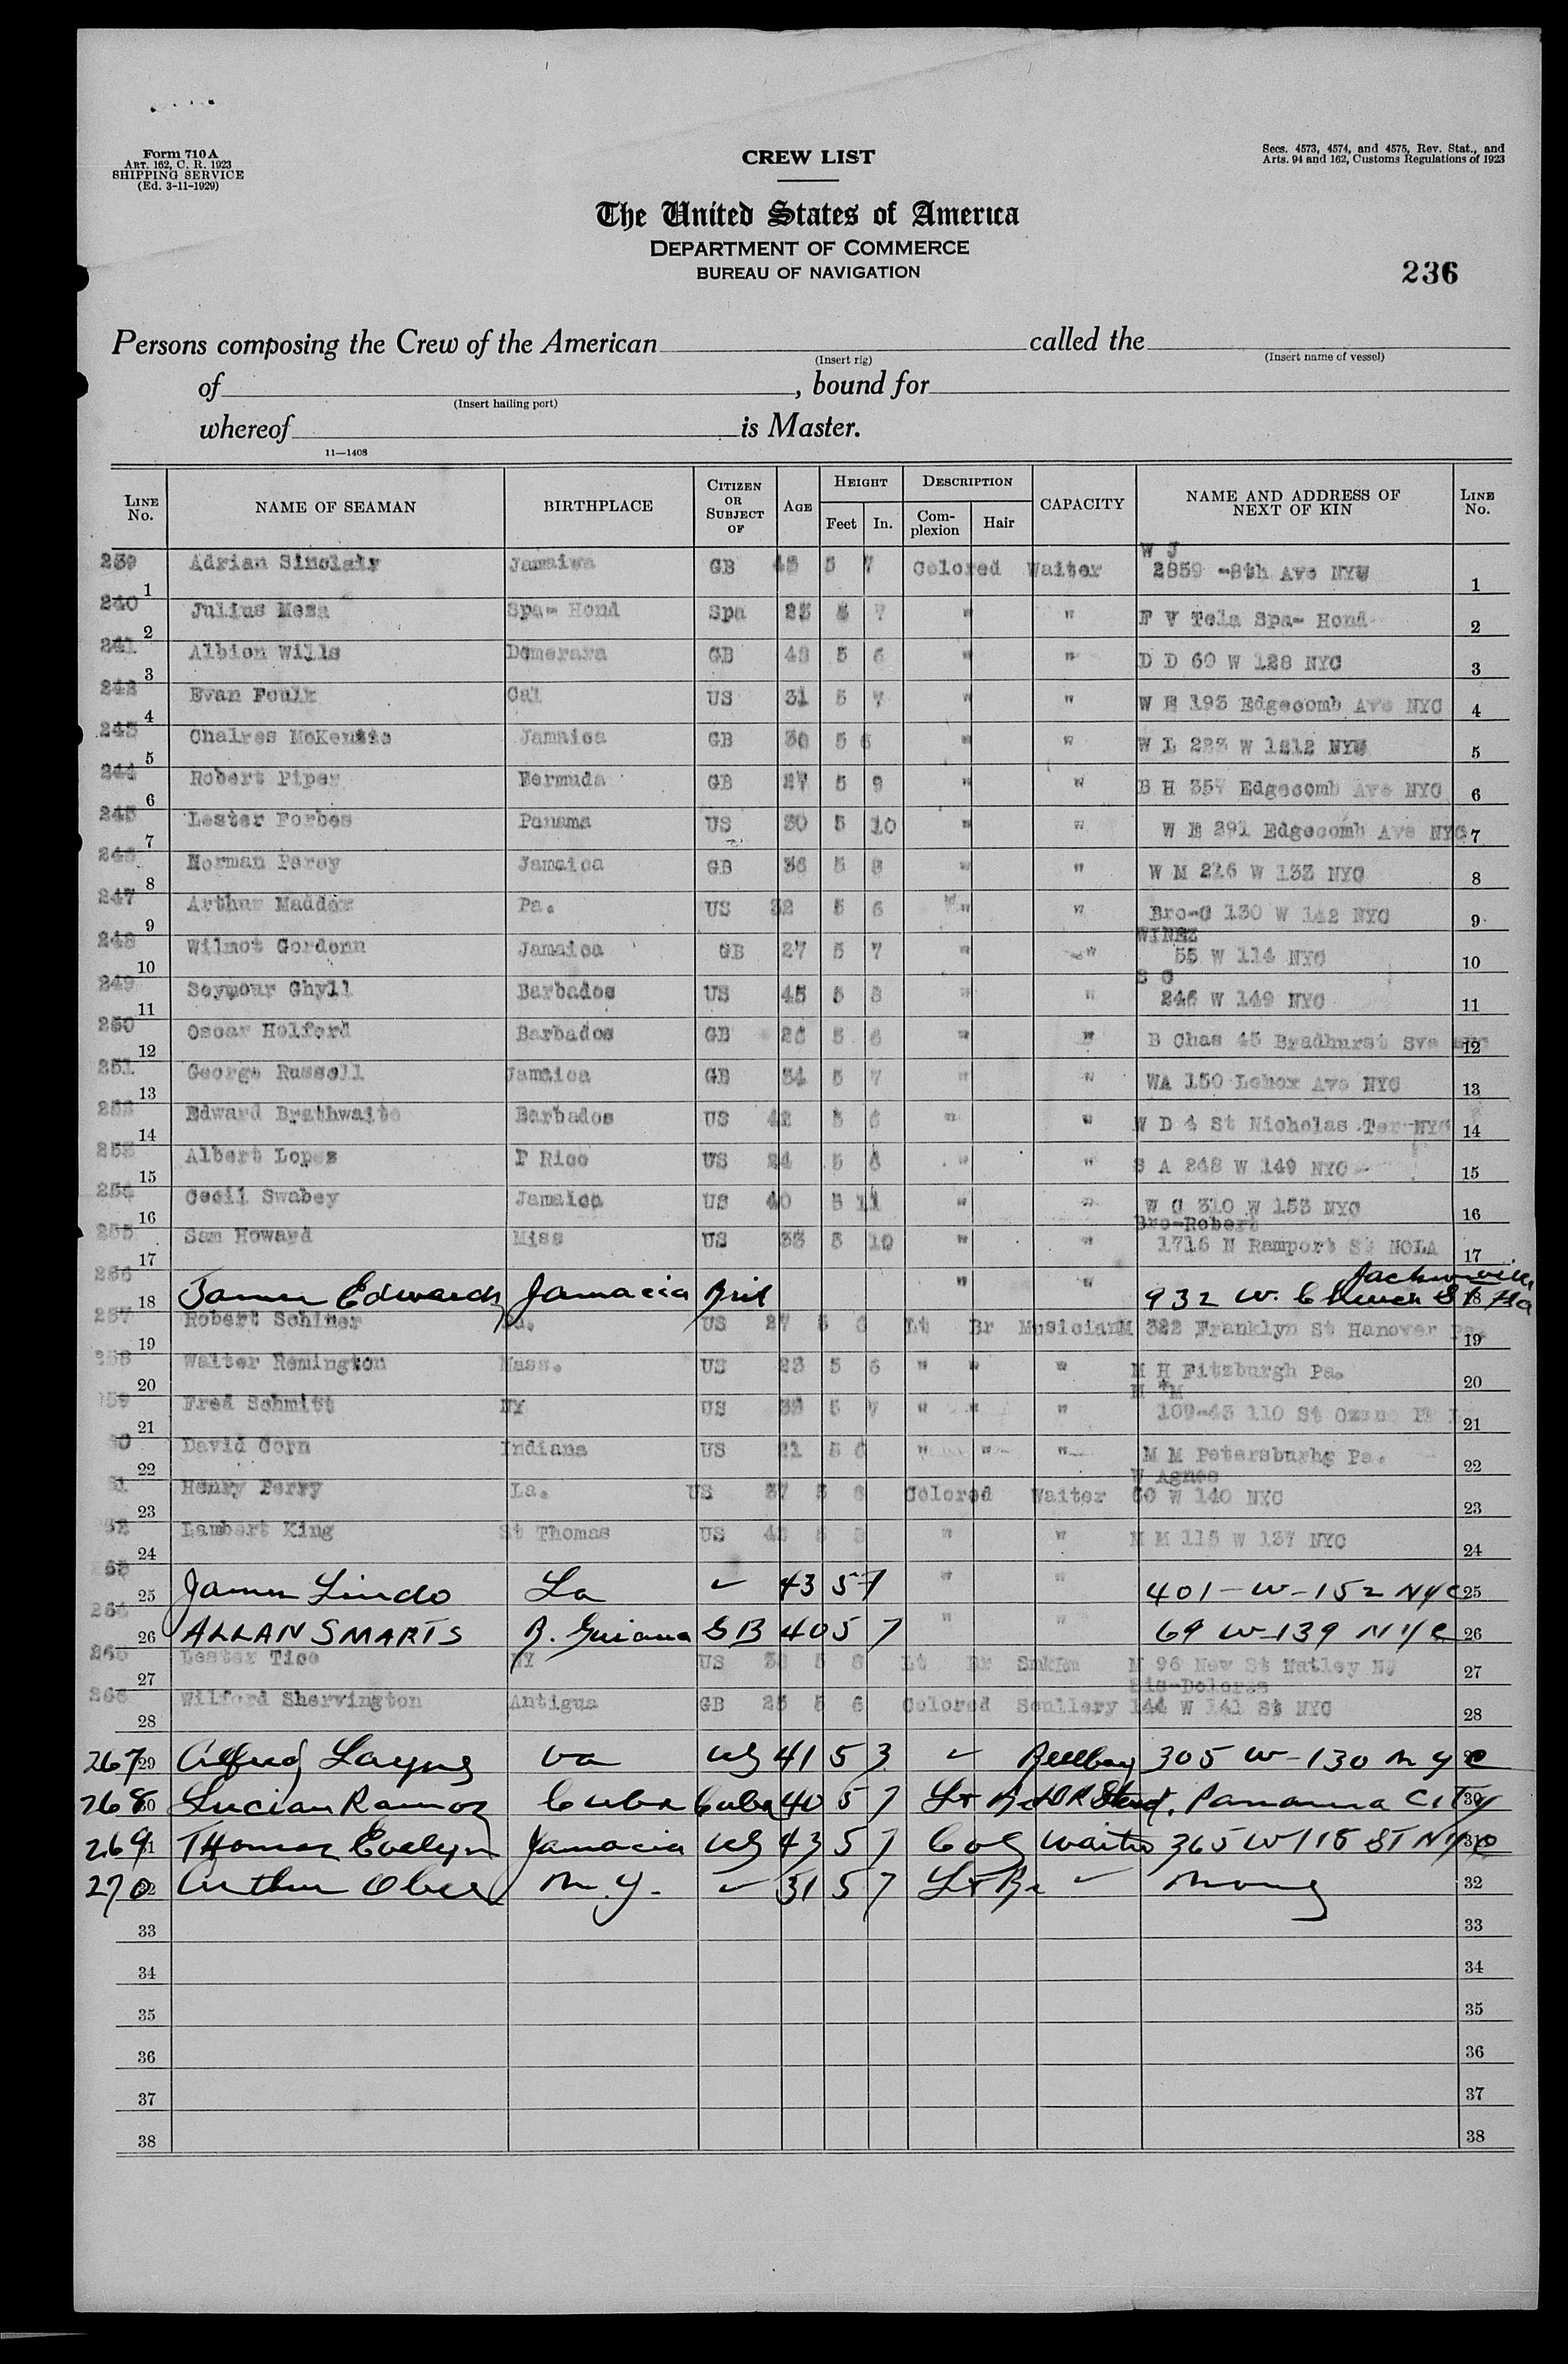 Form 710A
ART. 162, C. R. 1923
SHIPPING SERVICE
(Ed. 3-11-1929)
CREW LIST
Secs. 4573, 4574, and 4575, Rev. Stat., and
Arts. 94 and 162, Customs Regulations of 1923
The United States of America
DEPARTMENT OF COMMERCE
BUREAU OF NAVIGATION
236
Persons composing the Crew of the American called the
(Insert rig) (Insert name of vessel)
of , bound for
(Insert hailing port)
whereof is Master.
11—1408
LINE No. NAME OF SEAMAN BIRTHPLACE CITIZEN OR SUBJECT OF AGE HEIGHT Feet In. DESCRIPTION Complexion Hair CAPACITY NAME AND ADDRESS OF NEXT OF KIN LINE No.
W J
239 1 Adrian Sinclair Jamaica GB 45 5 7 Colored Waiter 2859 -8th Ave NYC 1
240 2 Julius Meza Spa- Hond Spa 23 5 7 " " F V Tela Spa- Hond 2
241 3 Albion Wills Demerara GB 48 5 6 " " D D 60 W 128 NYC 3
242 4 Evan Foulk Cal US 31 5 7 " " W E 193 Edgecomb Ave NYC 4
243 5 Chalres McKenzie Jamaica GB 30 5 6 " " W L 223 W 1212 NYC 5
244 6 Robert Piper Bermuda GB 27 5 9 " " B H 357 Edgecomb Ave NYC 6
245 7 Lester Forbes Panama US 30 5 10 " " W E 291 Edgecomb Ave NYC 7
246 8 Norman Percy Jamaica GB 36 5 8 " " W M 216 W 133 NYC 8
247 9 Arthur Maddox Pa. US 32 5 6 " " Bro-C 130 W 142 NYC 9
WINEZ
248 10 Wilmot Gordonn Jamaica GB 27 5 7 " " 55 W 114 NYC 10
S C
249 11 Seymour Ghyll Barbados US 45 5 8 " " 246 W 149 NYC 11
250 12 Oscar Holford Barbados GB 26 5 6 " " B Chas 45 Bradhurst Sve NYC 12
251 13 George Russell Jamaica GB 34 5 7 " " WA 150 Lenox Ave NYC 13
252 14 Edward Brathwaite Barbados US 42 5 6 " " W D 4 St Nicholas Ter NYC 14
253 15 Albert Lopez P Rico US 24 5 6 " " S A 248 W 149 NYC 15
254 16 Cecil Swabey Jamaica US 40 5 11 " " W C 310 W 153 NYC 16
Bro-Robert
255 17 Sam Howard Miss US 33 5 10 " " 1716 N Ramport St NOLA 17
Jacksonville
256 18 James Edwards Jamacia Brit " " 932 W. Church St Fla 18
257 19 Robert Schlner US 27 5 6 Lt Br Musician M 322 Franklyn St Hanover Pa. 19
258 20 Walter Remington Mass. US 23 5 6 " " " M H Fitzburgh Pa. 20
M M
259 21 Fred Schmitt NY US 38 5 7 " " " 109-43 110 St 21
60 22 David Corn Indiana US 21 5 6 " " " M M Petersburhg Pa. 22
W Agnes
61 23 Henry Perry La. US 37 5 8 Colored Waiter 60 W 140 NYC 23
62 24 Lambert King St Thomas US 42 5 8 " " M M 115 W 137 NYC 24
263 25 James Lindo La ✓ 43 5 7 " " 401-W-152 NYC 25
264 26 ALLAN SMARTS B. Guiana GB 40 5 7 " " 69 W-139 NYC 26
265 27 Lester Tice NY US 38 5 8 Lt Br M 96 New St Natley NJ 27
Sis-Dolores
266 28 Wilford Shervington Antigua GB 25 5 6 Colored Scullery 144 W 141 St NYC 28
267 29 Alfred Layne Va US 41 5 3 ✓ Bellboy 305 W-130 NYC 29
268 30 Lucian Ramoz Cuba Cuba 40 5 7 Lt Panama City 30
269 31 THomas Evelyn Jamacia US 43 5 7 Col Waiter 365 W 118 ST NYC 31
270 32 Arthur N.Y. ✓ 31 5 7 Lt Br ✓ 32
33 33
34 34
35 35
36 36
37 37
38 38